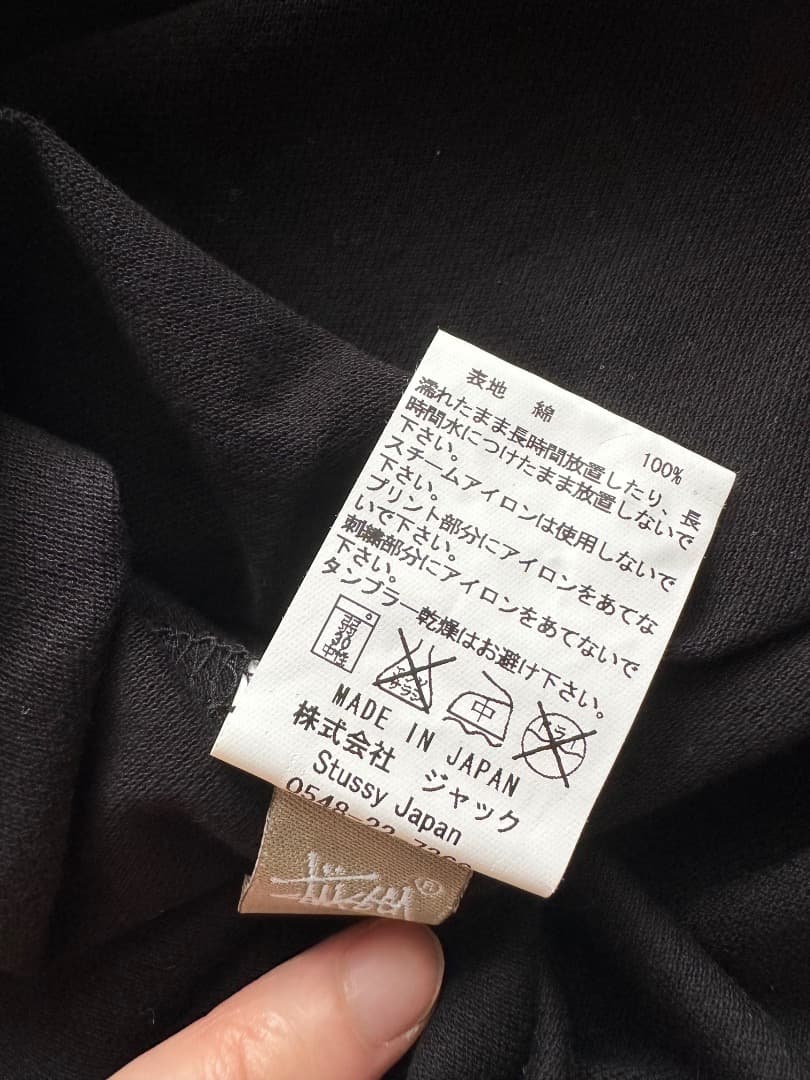 表地 綿 100%
濡れたまま長時間放置したり、長
時間水につけたまま放置しないで
下さい。
スチームアイロンは使用しないで
下さい。
プリント部分にアイロンをあてな
いで下さい。
刺繍部分にアイロンをあてないで
下さい。
タンブラー乾燥はお避け下さい。
弱 30 中性
エンソ サラシ
中
ドライ
MADE IN JAPAN
株式会社 ジャック
Stussy Japan
0548-22-
Stüssy ®